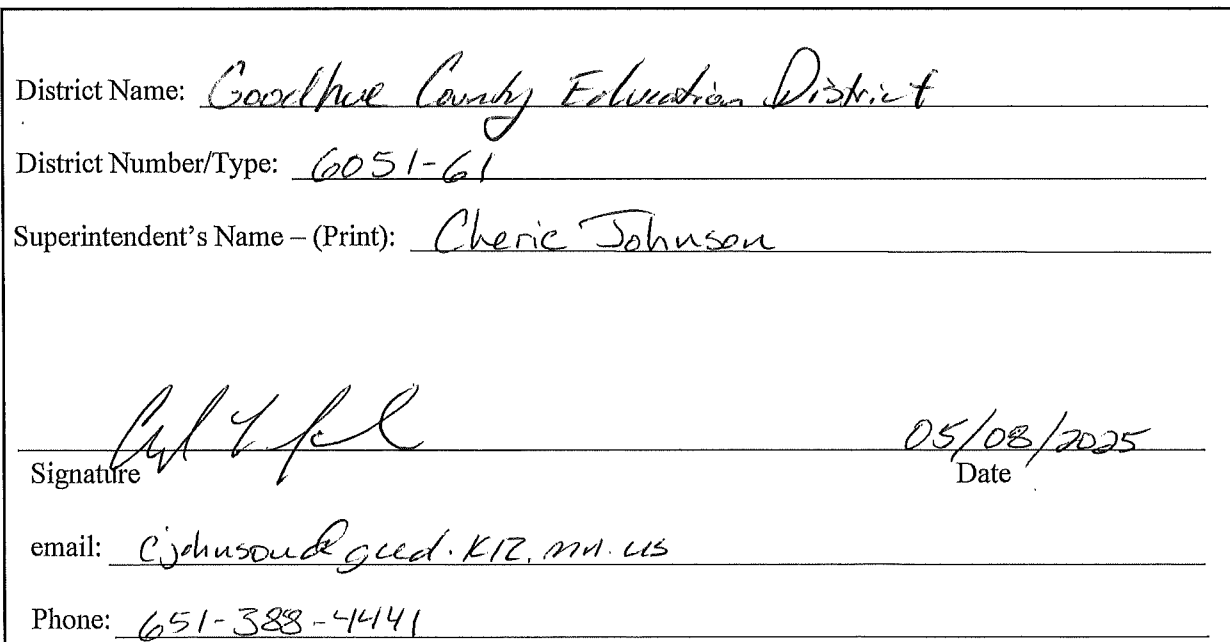 District Name: Goodhue County Education District
District Number/Type: 6051-61
Superintendent's Name – (Print): Cherie Johnson
05/08/2025
Signature Date
email: cjohnson@gced.k12.mn.us
Phone: 651-388-4441